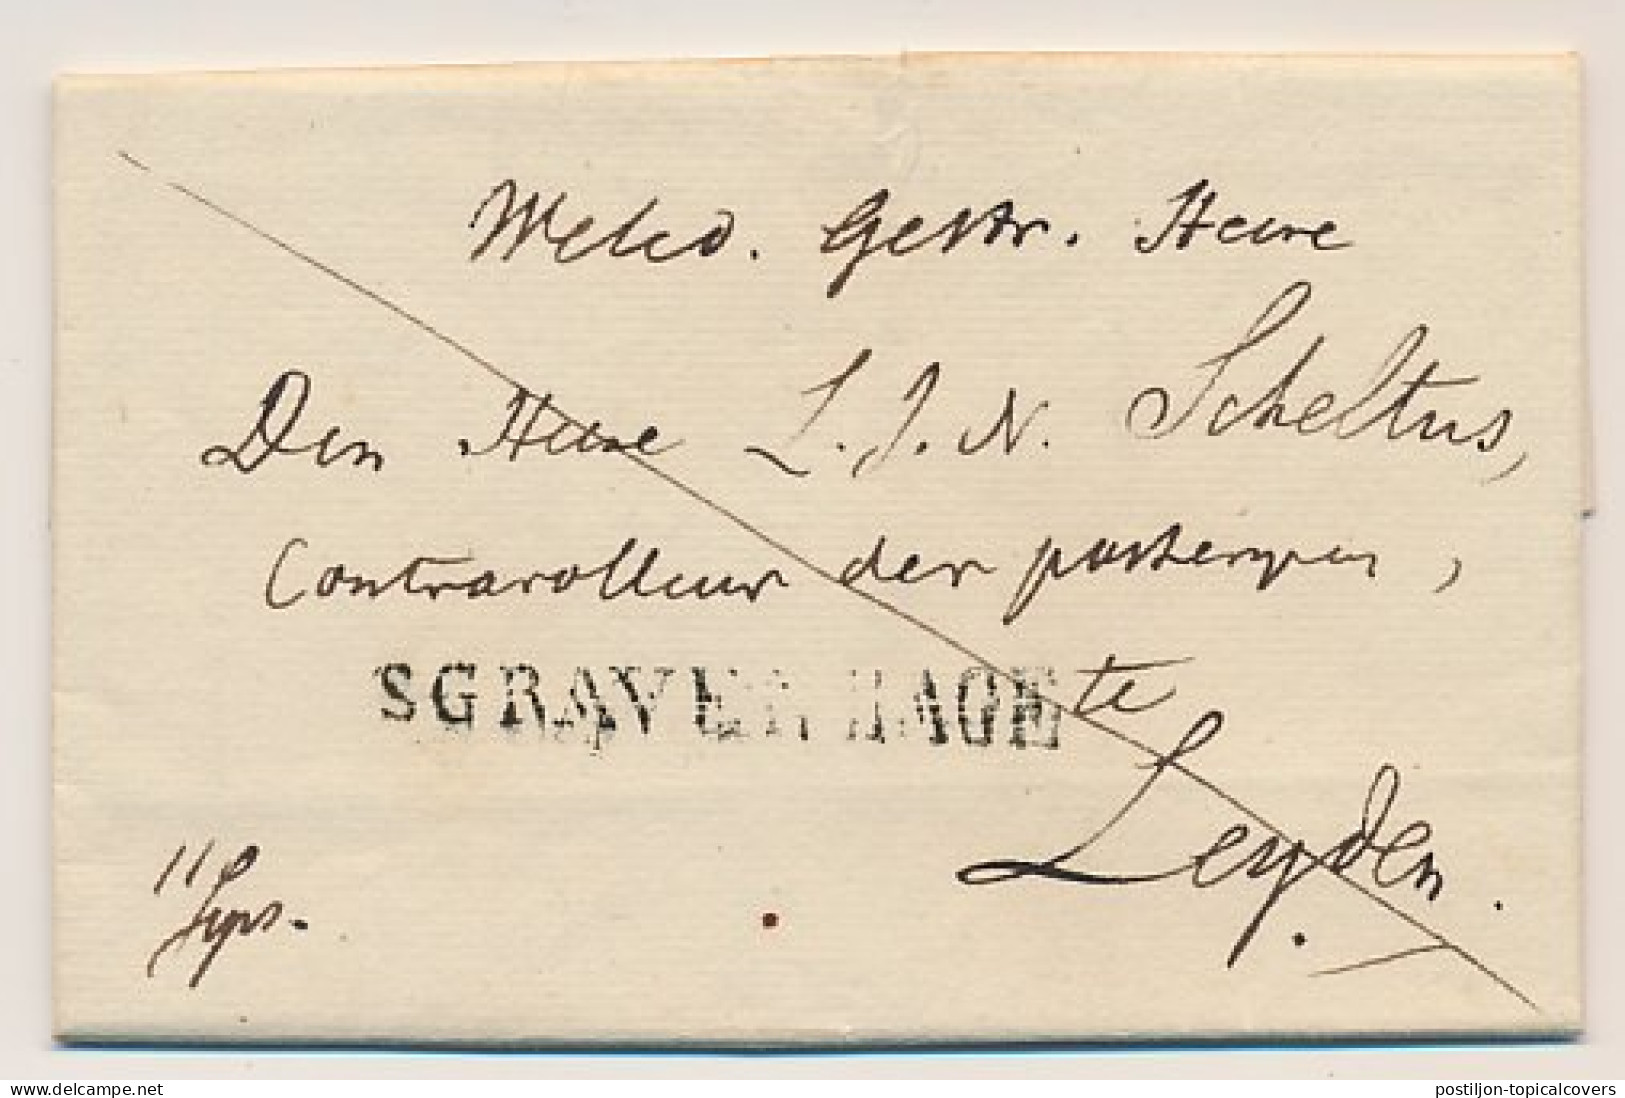 WelEd. Gestr. Heere
Den Heere L. J. N. Scheltus,
Contrarolleur der posteryen,
te
SGRAVENHAGE
Leyden.
www.delcampe.net
postiljon-topicalcovers